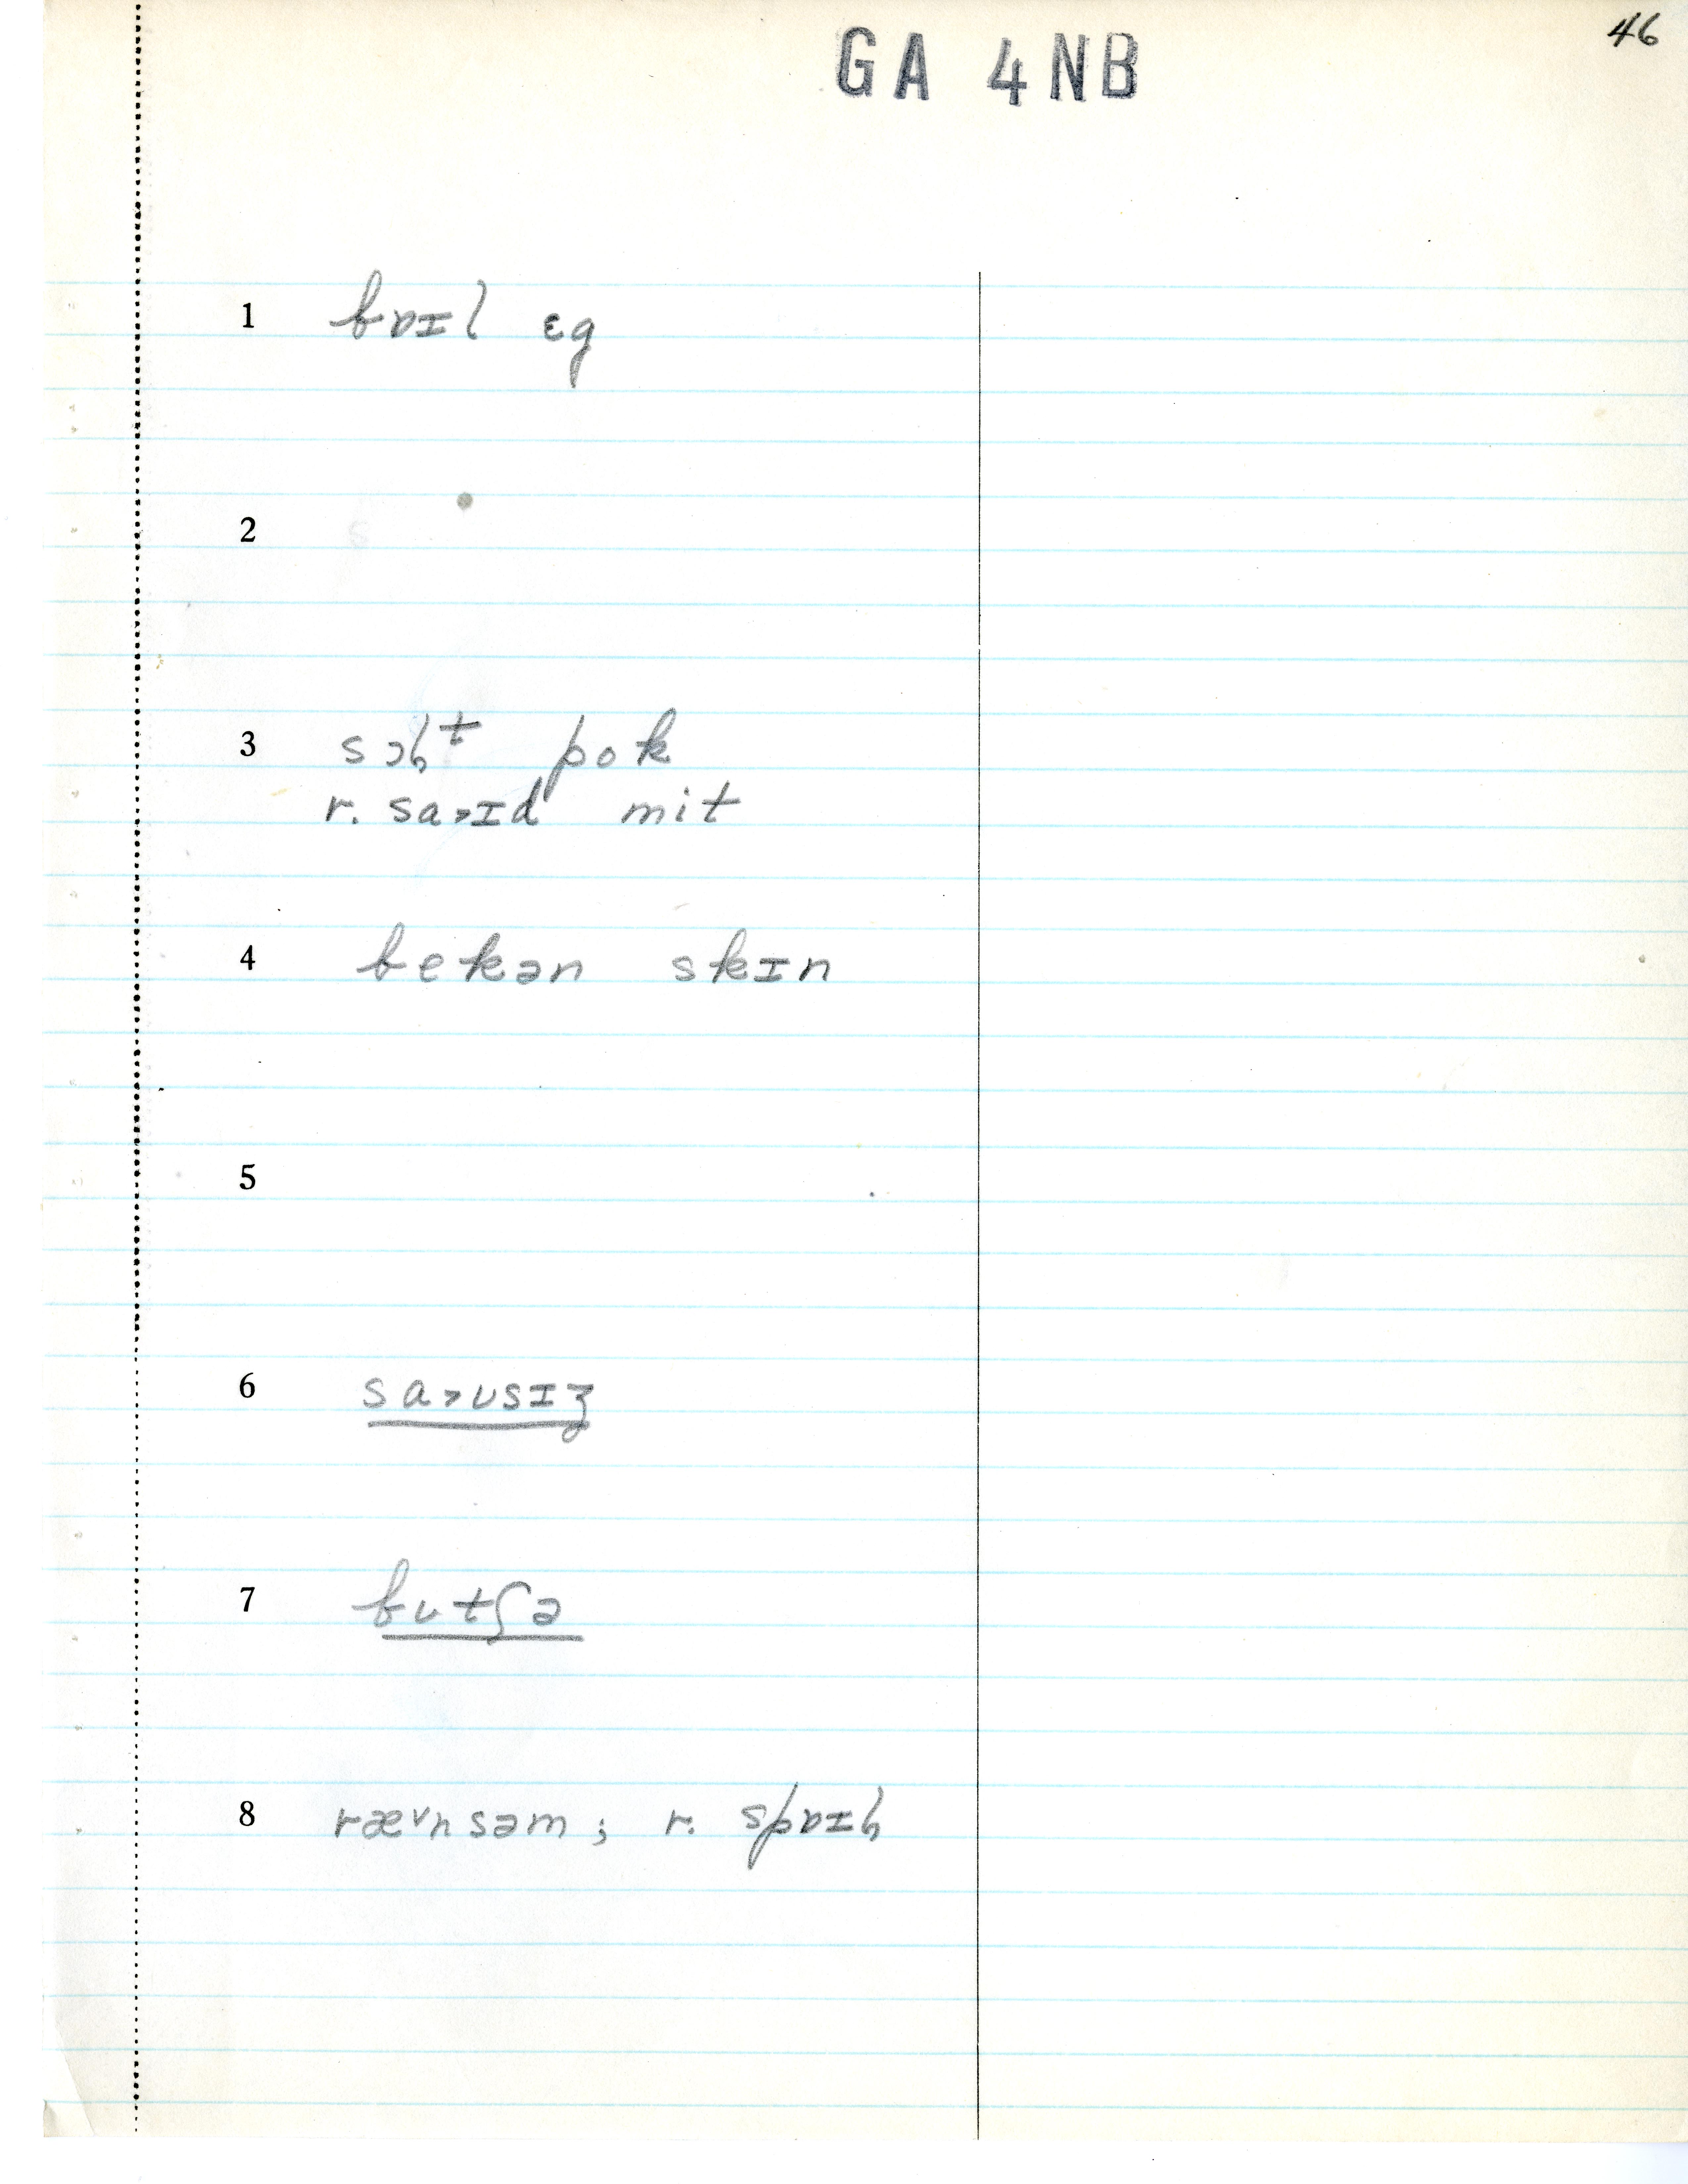 46
GA 4NB
1 bɒɪl ɛg
2
3 sɔɫᵗ pok
r. sa˃ɪd mit
4 bekən skɪn
5
6 sa˃ʊsɪʒ
7 bʊtʃə
8 ræᵛnsəm; r. spɒɪɫ